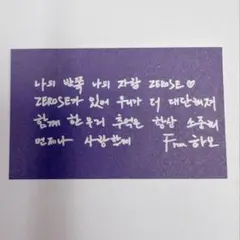 나의 반쪽 나의 자랑 ZEROSE ♡
ZEROSE가 있어 우리가 더 대단해져
함께 한 무거 추억은 항상 소중해
언제나 사랑한해 From 하오